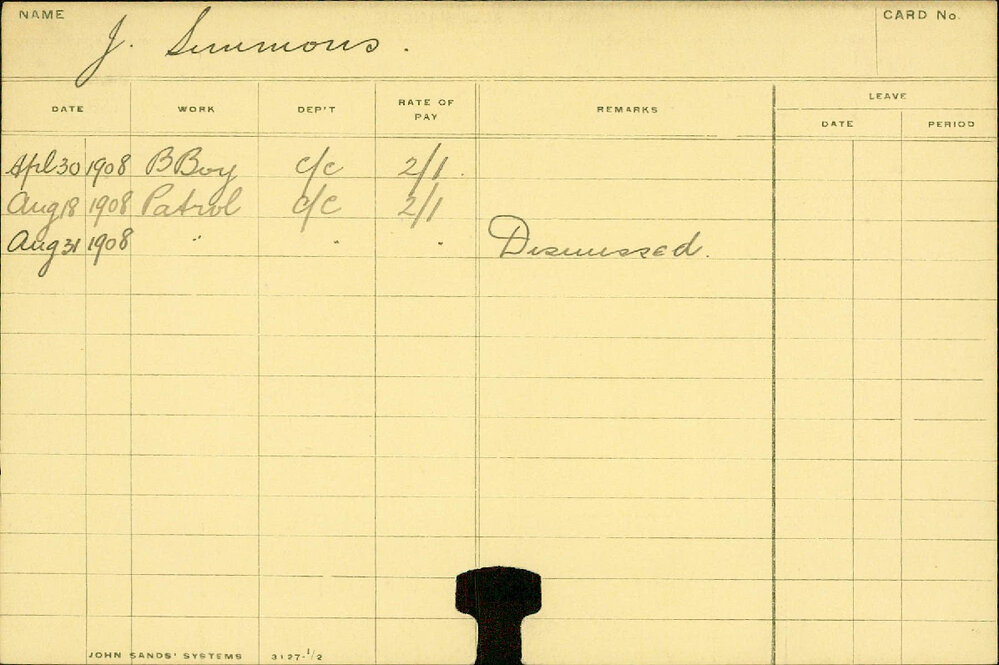 NAME
CARD No.
J. Simmons.
DATE WORK DEP'T RATE OF PAY REMARKS LEAVE
DATE PERIOD
Apl 30 1908 B Boy c/c 2/1
Aug 18 1908 Patrol c/c 2/1
Aug 31 1908 " " " Dismissed.
JOHN SANDS' SYSTEMS 3127-1/2